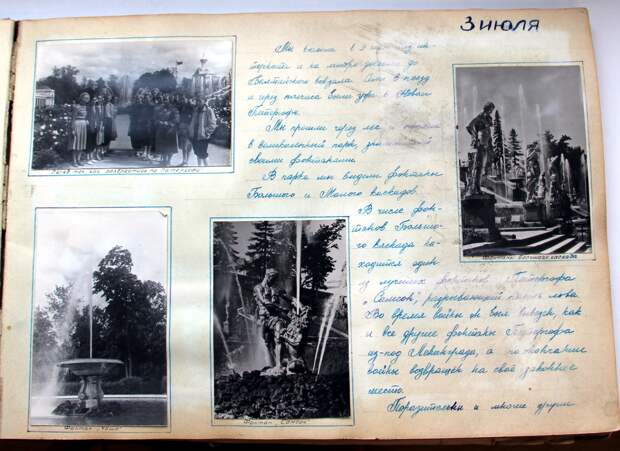 3 июля
Мы вышли в 3
и на метро до
Балтийского вокзала. Сели в поезд
и через полчаса были уже в Новом
Петергофе.
Мы прошли через лес и
в великолепный парк,
своими фонтанами.
В парке мы видели фонтаны
Большого и Малого каскадов.
В числе фон-
танов Большо-
го Каскада на-
ходится один
из лучших фонтанов Петергофа
"Самсон", разрывающий пасть льва.
Во время войны он был вывезен, как
и все другие фонтаны Петергофа
из-под Ленинграда, а
войны возвращен на своё законное
место.
Поразительны и многие другие
Фонтаны Большого каскада
Фонтан "Чаша"
Фонтан "Самсон"